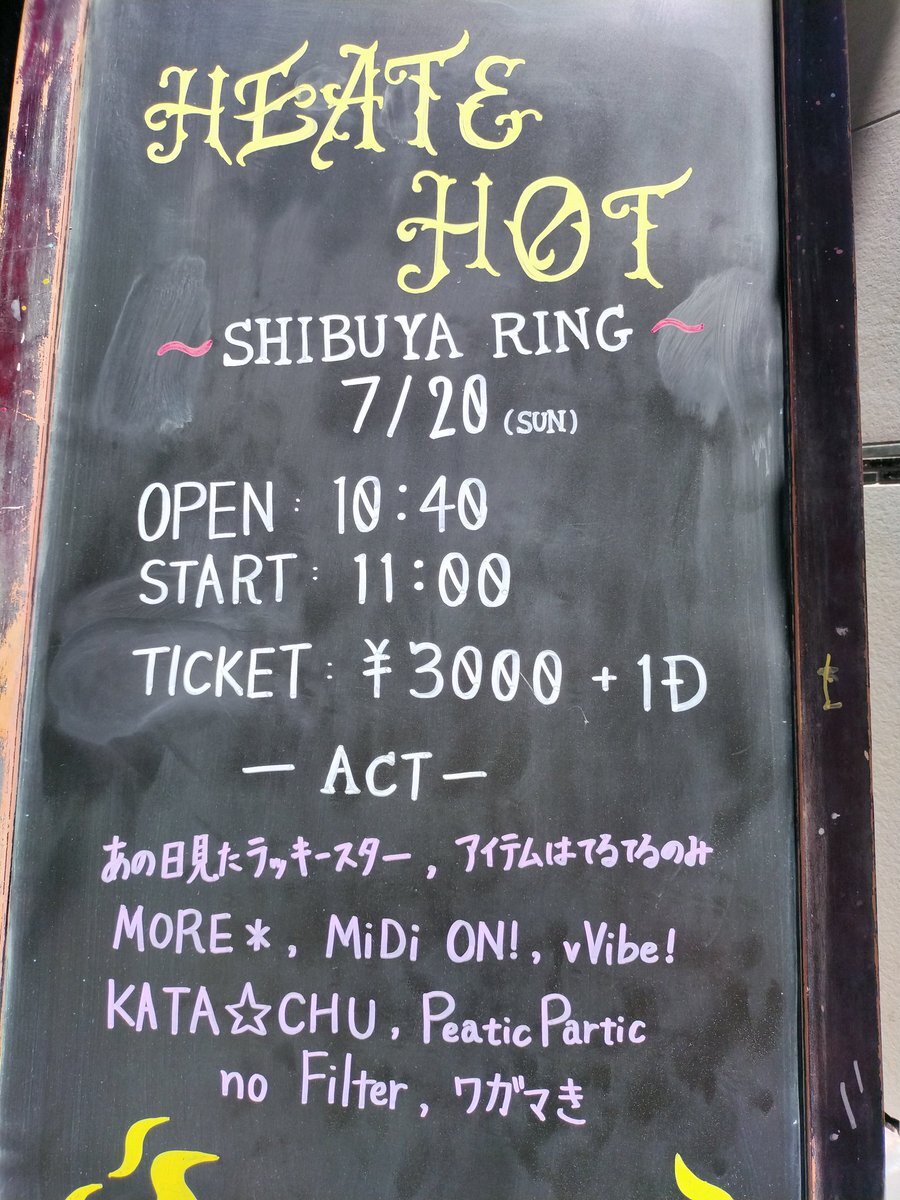 HEATE
HOT
~SHIBUYA RING~
7/20 (SUN)
OPEN: 10:40
START: 11:00
TICKET: ¥3000 + 1D
— ACT —
あの日見たラッキースター, アイテムはてるてるのみ
MORE*, MiDi ON!, vVibe!
KATA☆CHU, Peatic Partic
no Filter, ワガマき